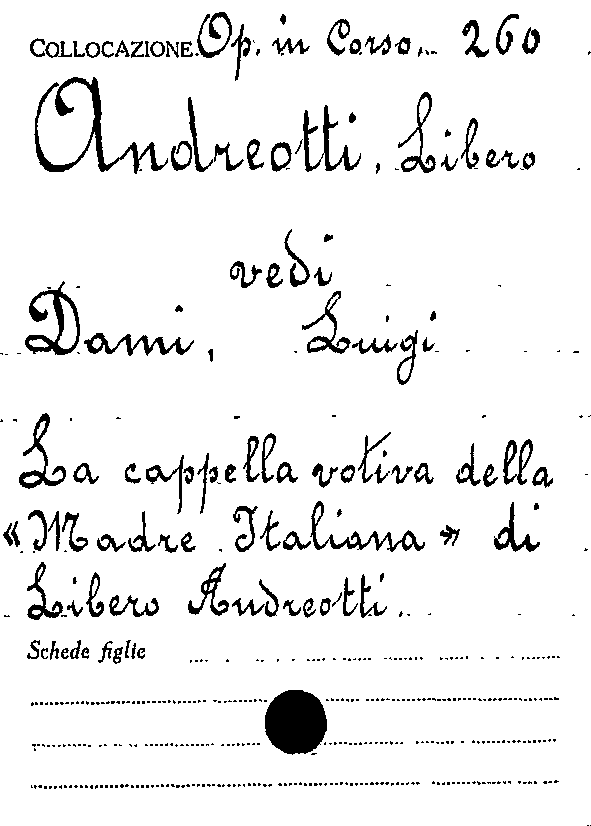 COLLOCAZIONE Op. in Corso. 260
Andreotti, Libero
vedi
Dami, Luigi
La cappella votiva della
«Madre Italiana» di
Libero Andreotti.
Schede figlie